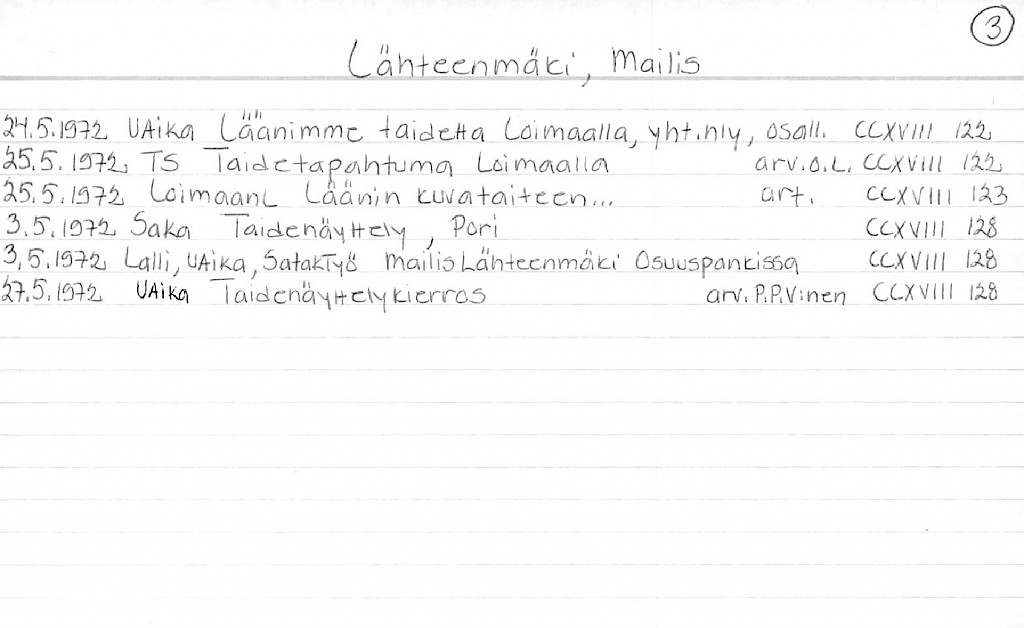 3
Lähteenmäki, Mailis
24.5.1972 UAika Läänimme taidetta Loimaalla, yht.nly, osall. CCXVIII 122
25.5.1972 TS Taidetapahtuma Loimaalla arv.O.L. CCXVIII 122
25.5.1972 LoimaanL Läänin kuvataiteen... art. CCXVIII 123
3.5.1972 SaKa Taidenäyttely, Pori CCXVIII 128
3.5.1972 Lalli, UAika, SatakTyö Mailis Lähteenmäki Osuuspankissa CCXVIII 128
27.5.1972 UAika Taidenäyttelykierros arv. P.P.Vinen CCXVIII 128